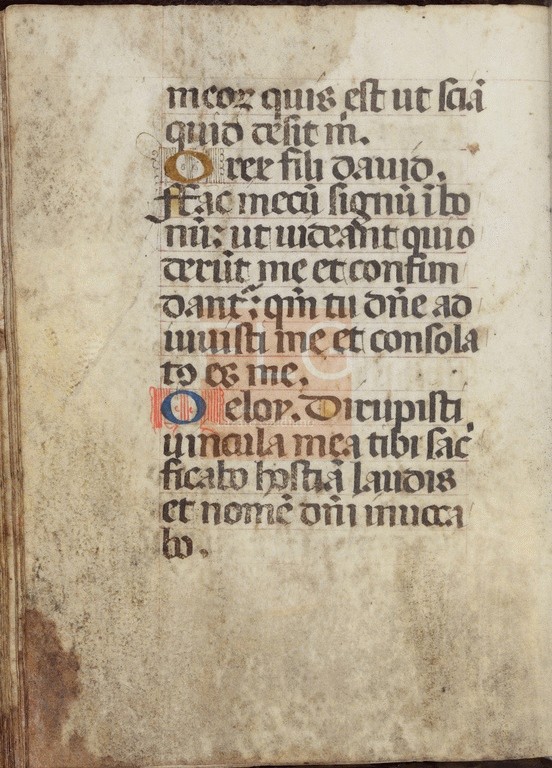 meorꝫ quis est ut sciā
quid desit m̄.
O rex fili dauid.
Fac mecū signū ī bo
nū: ut uideant qui o
derūt me et confun
dant᷑: qm̄ tu dn̄e ad
iuuisti me et consola
tꝰ es me.
O eloy. Dirupisti
uincula mea tibi sac̄
ficabo hostiā laudis
et nomē dn̄i inuoca
bo.